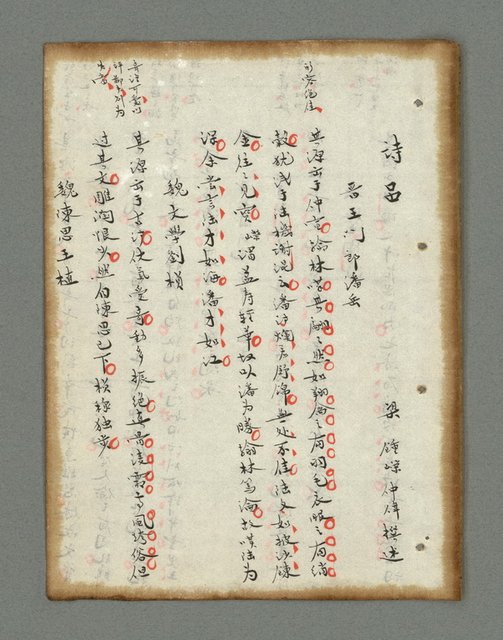 詩品 梁 鍾嶸仲偉撰述
晋王門郎潘岳
其源出于仲宣翰林嘆其翩翩然如翔禽之有羽毛衣服之有綃
縠猶淺于陸機謝混云潘詩爛若舒錦無处不佳陸文如披沙揀
金往往見寳嶸謂益寿輕華故以潘為勝翰林篤論故嘆陸為
深余常言陸才如海潘才如江
魏文學劉楨
其源出于古詩仗氣愛奇動多振絕真骨凌霜高風跨俗但
過其文雕潤恨少然自陳思已下楨稱独步
魏陳思王植